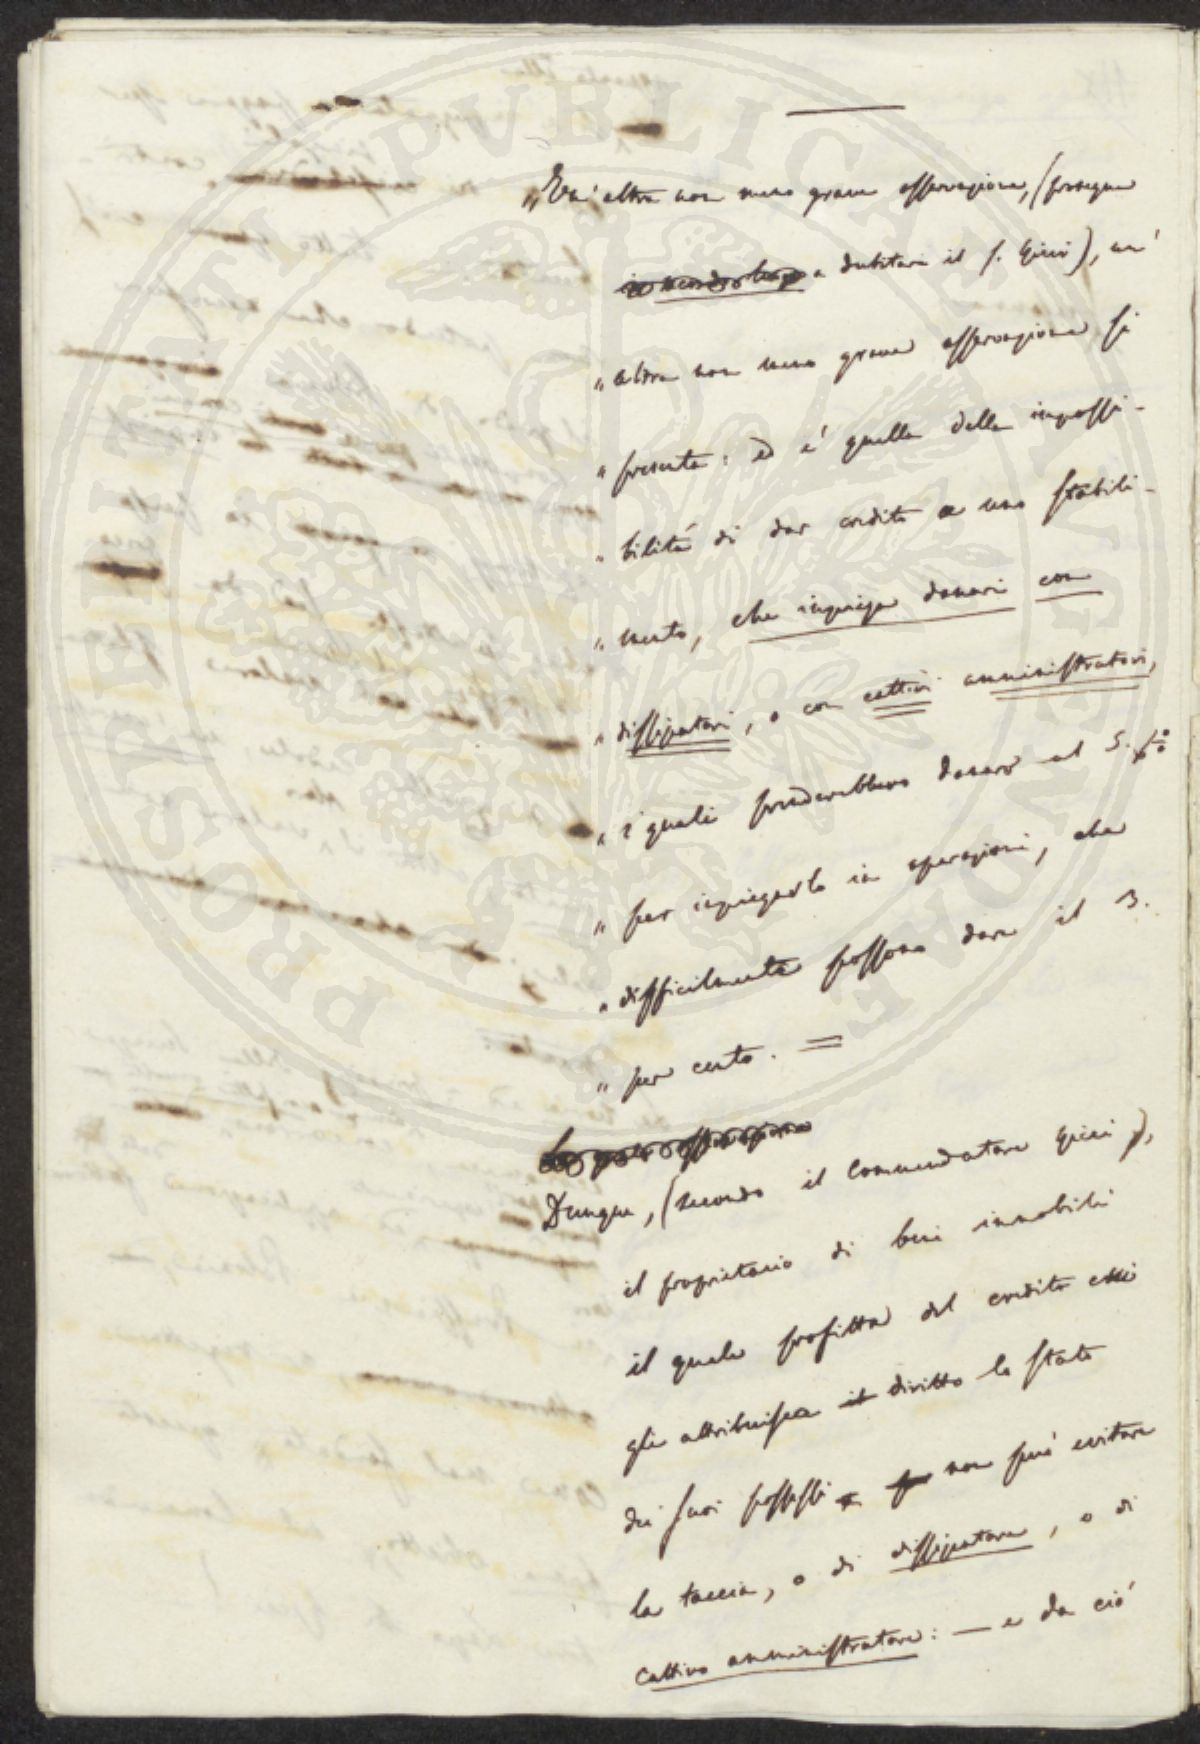 „ Un' altra non meno grave osservazione, (prosegue
a dubitare il S. Ricci), un'
„ altra non meno grave osservazione si
„ presenta: ed è quella della impossi-
„ bilità di dar credito a uno stabili-
„ mento, che impiega danari con
„ dissipatori, o con cattivi amministratori,
„ i quali prenderebbero danaro al 5. p%
„ per impiegarlo in operazioni, che
„ difficilmente possono dare il 3.
„ per cento. =
Dunque, (secondo il Commendatore Ricci),
il proprietario di beni immobili
il quale profitta del credito che
gli attribuisce il diritto lo stato
dei suoi possessi non può evitare
la taccia, o di dissipatore, o di
cattivo amministratore: — e da ciò
PROSPERITATI PVBLICAE AVGENDAE